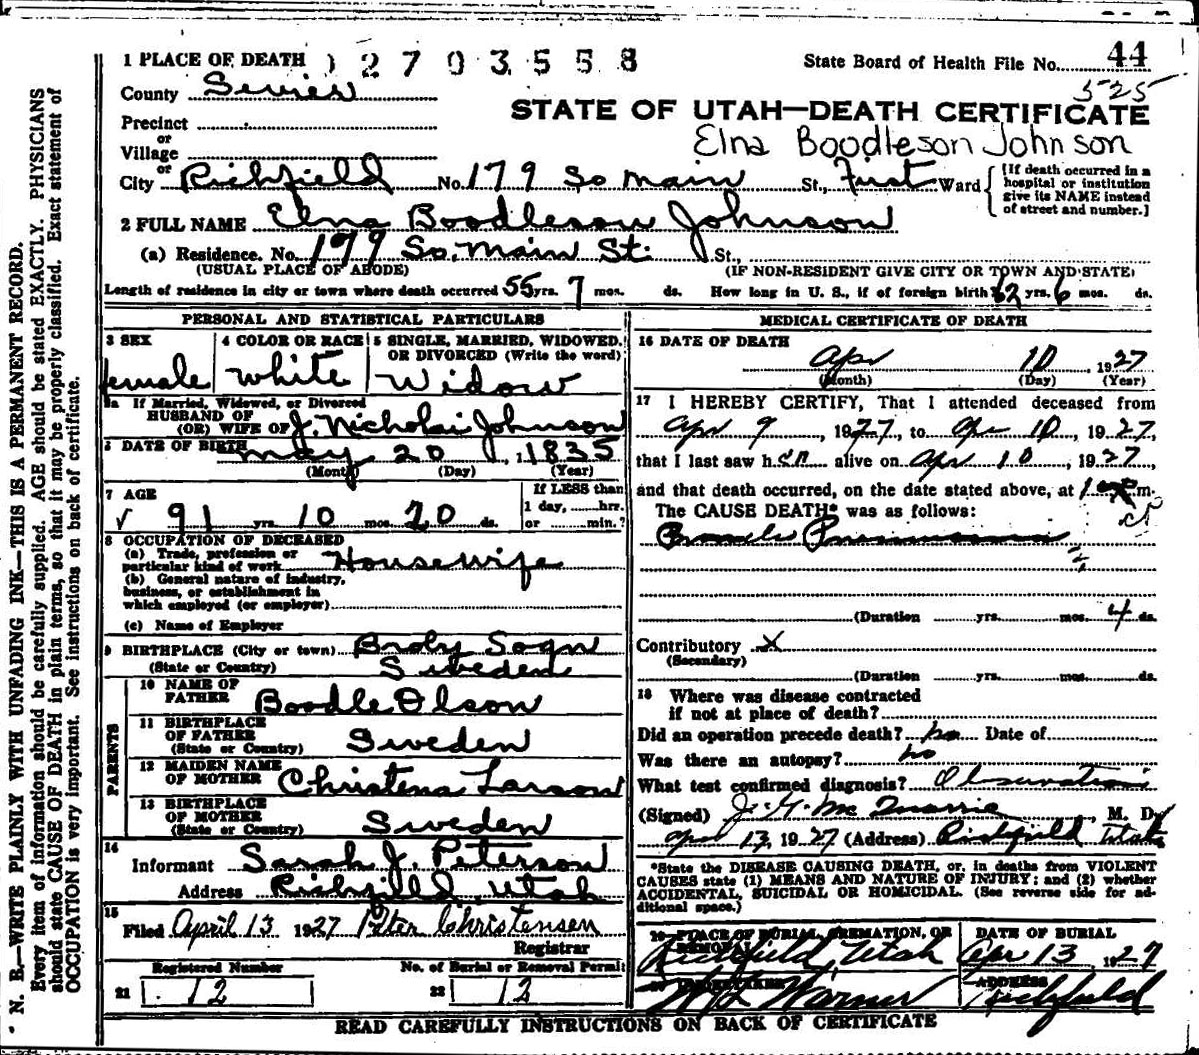 1 PLACE OF DEATH 0 2 7 0 3 5 5 8
State Board of Health File No. 44
County Sevier
525
STATE OF UTAH—DEATH CERTIFICATE
Precinct
Elna Boodleson Johnson
or
Village
or
City Richfield No. 179 So main St., First Ward
{If death occurred in a hospital or institution give its NAME instead of street and number.]
2 FULL NAME Elna Boodleson Johnson
(a) Residence. No. 179 So. Main St. St.,
(USUAL PLACE OF ABODE) (IF NON-RESIDENT GIVE CITY OR TOWN AND STATE)
Length of residence in city or town where death occurred 55 yrs. 7 mos. ds. How long in U. S., if of foreign birth 62 yrs. 6 mos. ds.
PERSONAL AND STATISTICAL PARTICULARS
3 SEX
female
4 COLOR OR RACE
white
5 SINGLE, MARRIED, WIDOWED, OR DIVORCED (Write the word)
Widow
5a If Married, Widowed, or Divorced
HUSBAND OF
(OR) WIFE OF J. Nicholai Johnson
6 DATE OF BIRTH may 20, 1835
(Month) (Day) (Year)
7 AGE
91 yrs. 10 mos. 20 ds.
If LESS than
1 day, hrr.
or min.?
8 OCCUPATION OF DECEASED
(a) Trade, profession or
particular kind of work Housewife
(b) General nature of industry,
business, or establishment in
which employed (or employer)
(c) Name of Employer
9 BIRTHPLACE (City or town) Broby Sogn
(State or Country) Sweden
PARENTS
10 NAME OF
FATHER Boodle Olson
11 BIRTHPLACE
OF FATHER
(State or Country) Sweden
12 MAIDEN NAME
OF MOTHER Christena Larson
13 BIRTHPLACE
OF MOTHER
(State or Country) Sweden
14
Informant Sarah J. Peterson
Address Richfield, Utah
15
Filed April 13 1927 Peter Christensen
Registrar
Registered Number
21 12
No. of Burial or Removal Permit
22 12
MEDICAL CERTIFICATE OF DEATH
16 DATE OF DEATH
Apr 10, 1927
(Month) (Day) (Year)
17 I HEREBY CERTIFY, That I attended deceased from
Apr 9, 1927, to Apr 10, 1927,
that I last saw h er alive on Apr 10, 1927,
and that death occurred, on the date stated above, at m.
The CAUSE DEATH* was as follows:
(Duration yrs. mos. 4 ds.
Contributory X
(Secondary)
(Duration yrs. mos. ds.
18 Where was disease contracted
if not at place of death?
Did an operation precede death? no Date of
Was there an autopsy? no
What test confirmed diagnosis? Observation
(Signed) J. G. McQuarrie, M. D.
Apr 13, 1927 (Address) Richfield Utah
*State the DISEASE CAUSING DEATH, or, in deaths from VIOLENT
CAUSES state (1) MEANS AND NATURE OF INJURY; and (2) whether
ACCIDENTAL, SUICIDAL OR HOMICIDAL. (See reverse side for ad-
ditional space.)
19 PLACE OF BURIAL, CREMATION, OR
REMOVAL
Richfield, Utah
DATE OF BURIAL
Apr 13 1927
20 UNDERTAKER
Warner
ADDRESS
Richfield
READ CAREFULLY INSTRUCTIONS ON BACK OF CERTIFICATE
N. B.—WRITE PLAINLY WITH UNFADING INK—THIS IS A PERMANENT RECORD.
Every item of information should be carefully supplied. AGE should be stated EXACTLY. PHYSICIANS
should state CAUSE OF DEATH in plain terms, so that it may be properly classified. Exact statement of
OCCUPATION is very important. See instructions on back of certificate.